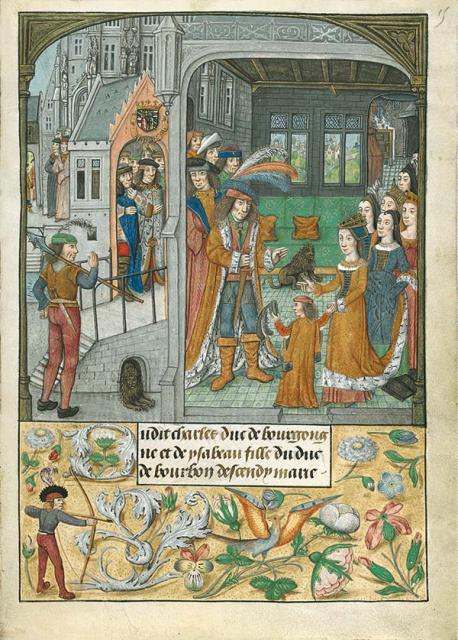 Dudit charles duc de bourgong
ne et de ysabeau fille du duc
de bourbon descendy marie